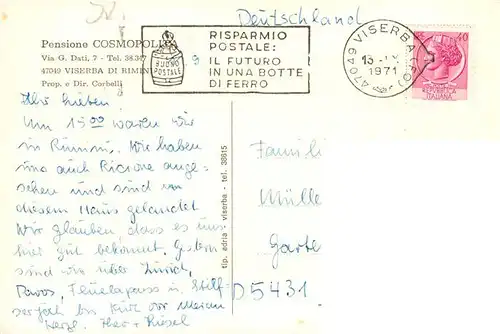 Deutschland
Pensione COSMOPOLI
Via G. Dati, 7 - Tel. 38.3
47049 VISERBA DI RIMINI
Prop. e Dir. Corbelli
BUONO
POSTALE
RISPARMIO
POSTALE:
IL FUTURO
IN UNA BOTTE
DI FERRO
47049 VISERBA
13
1971
40
ITALIANA
Ihr Lieben!
Um 15 00 waren wir
in Rimini. Wir haben
uns auch Riccione ange-
sehen und sind in
diesem Haus gelandet
Wir glauben dass es uns
hier gut bekommt. Gestern
sind wir über Zürich,
Davos, Flüelapass in Stilf-
serjoch bis kurz vor Meran
Herzl.
tip. edria viserba - tel. 38615
Familie
Müller
D 5431